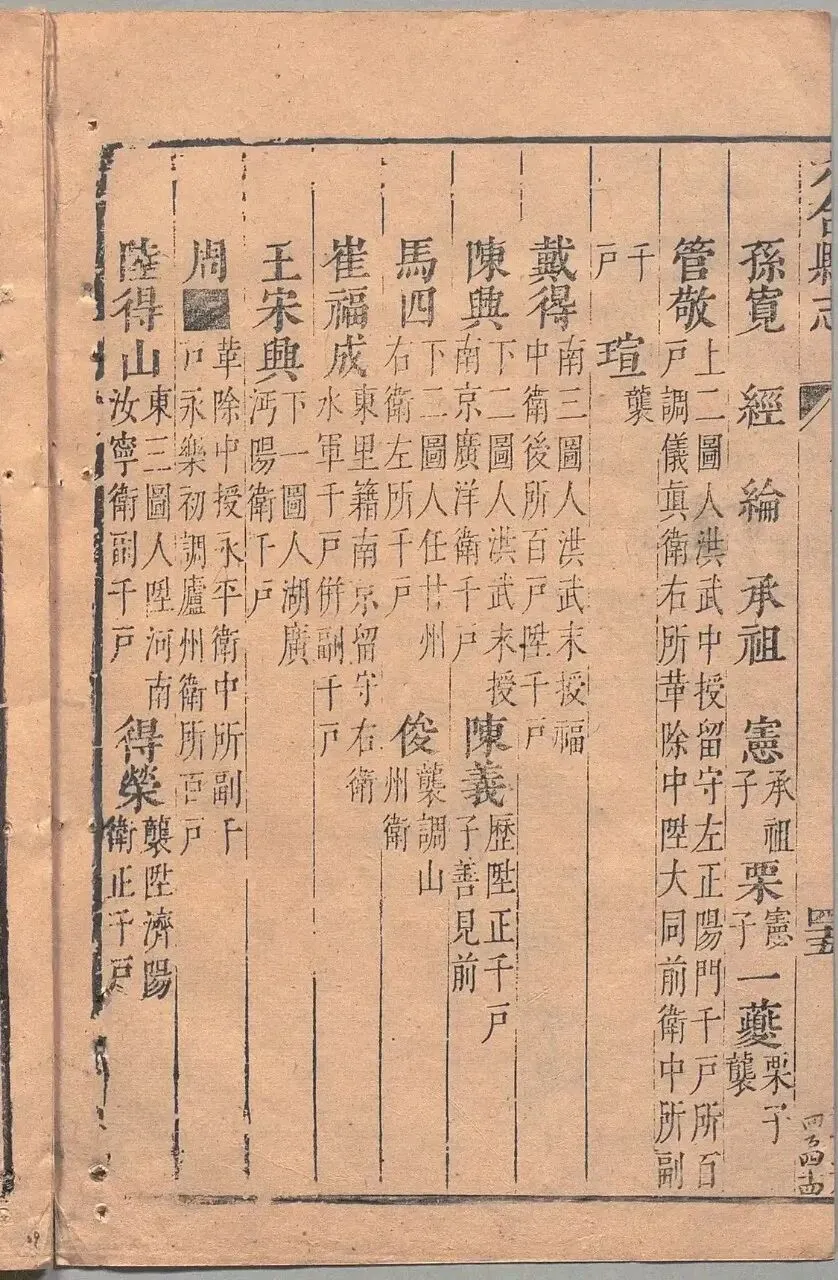 六合縣志
四五
孫寬 經 綸 承祖 憲承祖子 栗憲子 一夔栗子襲
管敬上二圖人洪武中授留守左正陽門千戶所百戶調儀真衛右所革除中陞大同前衛中所副
千戶 瑄襲
戴得南三圖人洪武末授福中衛後所百戶陞千戶
陳興下二圖人洪武末授南京廣洋衛千戶 陳義歷陞正千戶子善見前
馬四下二圖人任甘州右衛左所千戶 俊襲調山州衛
崔福成東里籍南京留守右衛水軍千戶併副千戶
王宋興下一圖人湖廣沔陽衛千戶
周 革除中授永平衛中所副千戶永樂初調廬州衛所百戶
陸得山東三圖人陞河南汝寧衛副千戶 得榮襲陞濟陽衛正千戶